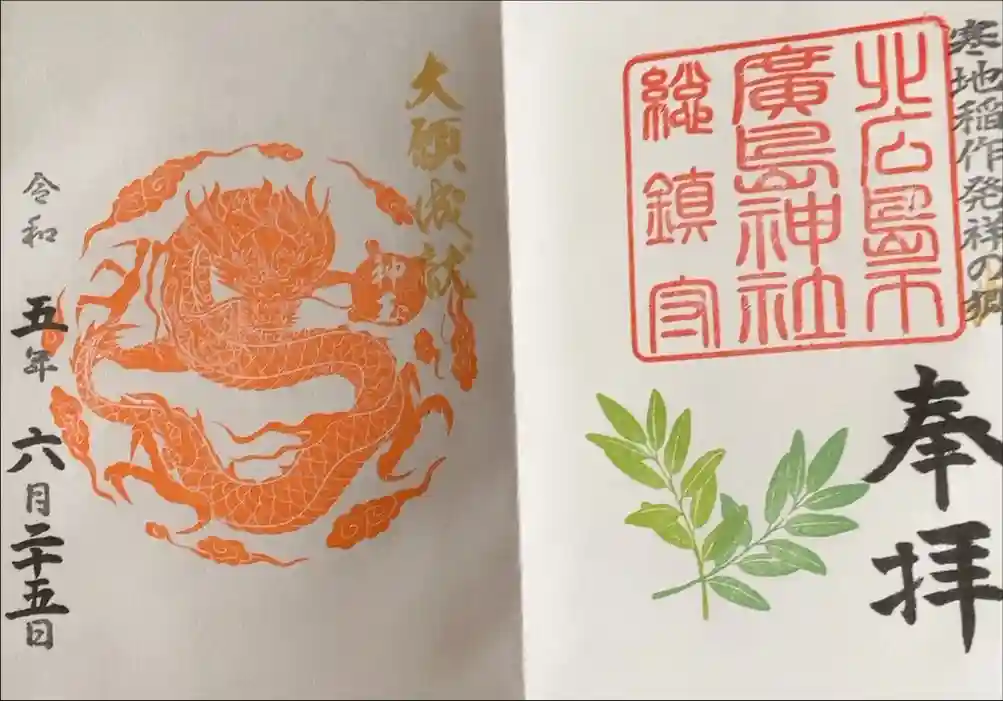 寒地稲作発祥の郷
奉拝
北広島市
廣島神社
総鎮守
大願成就
神玉
令和五年六月二十五日